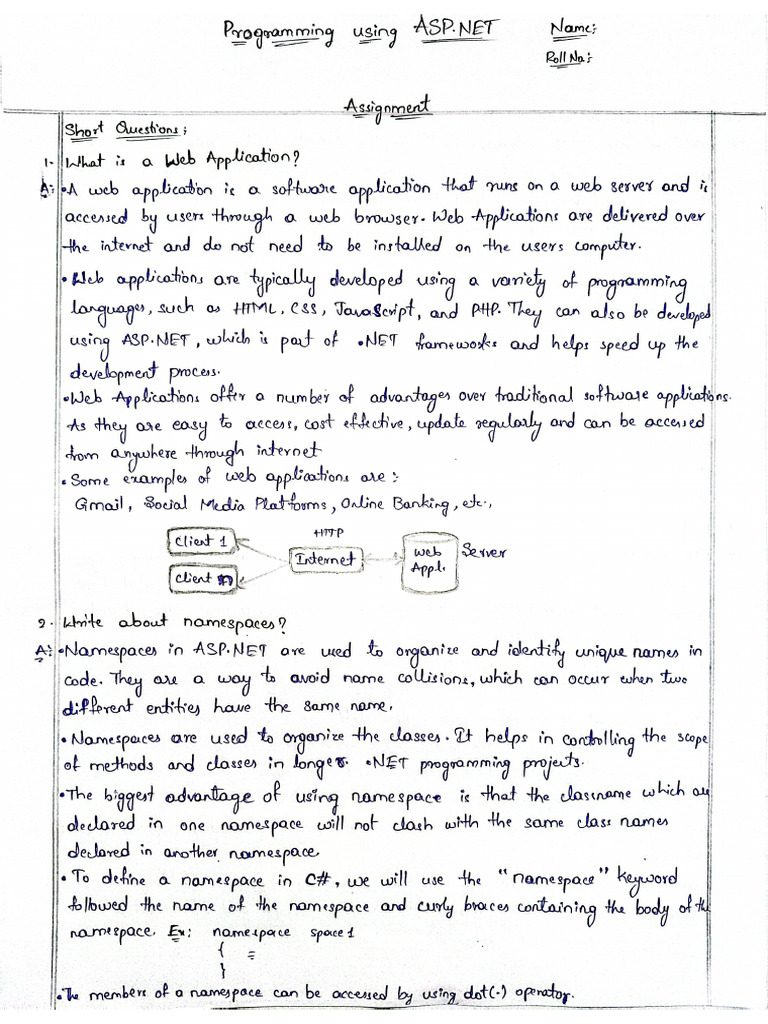 Programming using ASP.NET
Name:
Roll No:
Assignment
Short Questions;
1. What is a Web Application?
A: • A web application is a software application that runs on a web server and is
accessed by users through a web browser. Web Applications are delivered over
the internet and do not need to be installed on the users computer.
• Web applications are typically developed using a variety of programming
languages, such as HTML, CSS, JavaScript, and PHP. They can also be developed
using ASP.NET, which is part of .NET frameworks and helps speed up the
development process.
• Web Applications offer a number of advantages over traditional software applications.
As they are easy to access, cost effective, update regularly and can be accessed
from anywhere through internet
• Some examples of web applications are:
Gmail, Social Media Platforms, Online Banking, etc.,
Client 1
HTTP
Internet
Web
Appl.
Server
Client n
2. Write about namespaces?
A: • Namespaces in ASP.NET are used to organize and identify unique names in
code. They are a way to avoid name collisions, which can occur when two
different entities have the same name.
• Namespaces are used to organize the classes. It helps in controlling the scope
of methods and classes in longer .NET programming projects.
• The biggest advantage of using namespace is that the classname which are
declared in one namespace will not clash with the same class names
declared in another namespace
• To define a namespace in C#, we will use the "namespace" keyword
followed the name of the namespace and curly braces containing the body of the
namespace. Ex: namespace space1
{
=
}
• The members of a namespace can be accessed by using dot(.) operator.